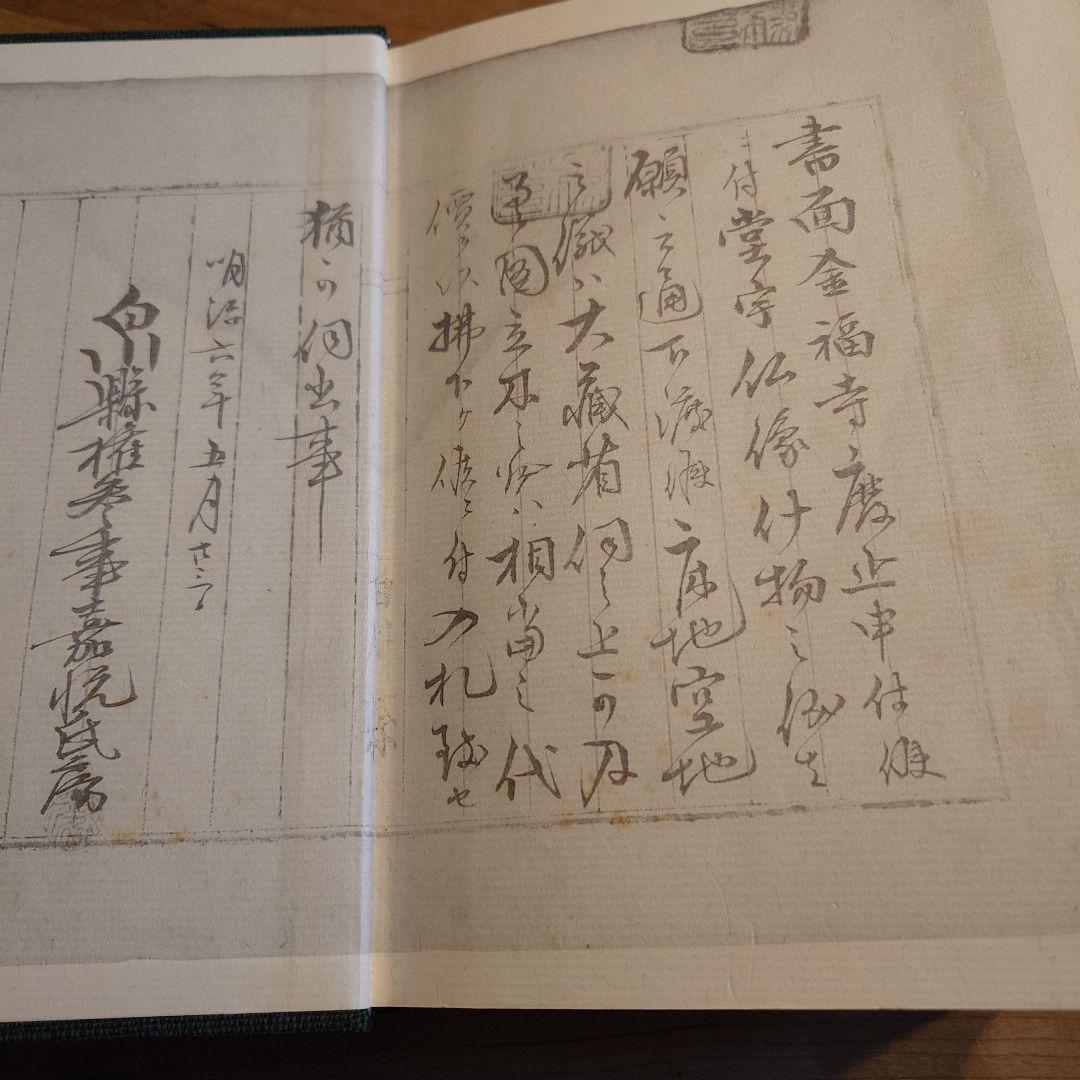 書面金福寺廃止申付候
付堂宇仏像什物之儀者
願之通下渡候床地空地
之儀ハ大蔵省伺之上可及
図立木之分ハ相當之代
價ヲ以拂下ケ候条付入札致セ
猶可伺出事
明治六年五月廿
白川縣権参事嘉悦氏房